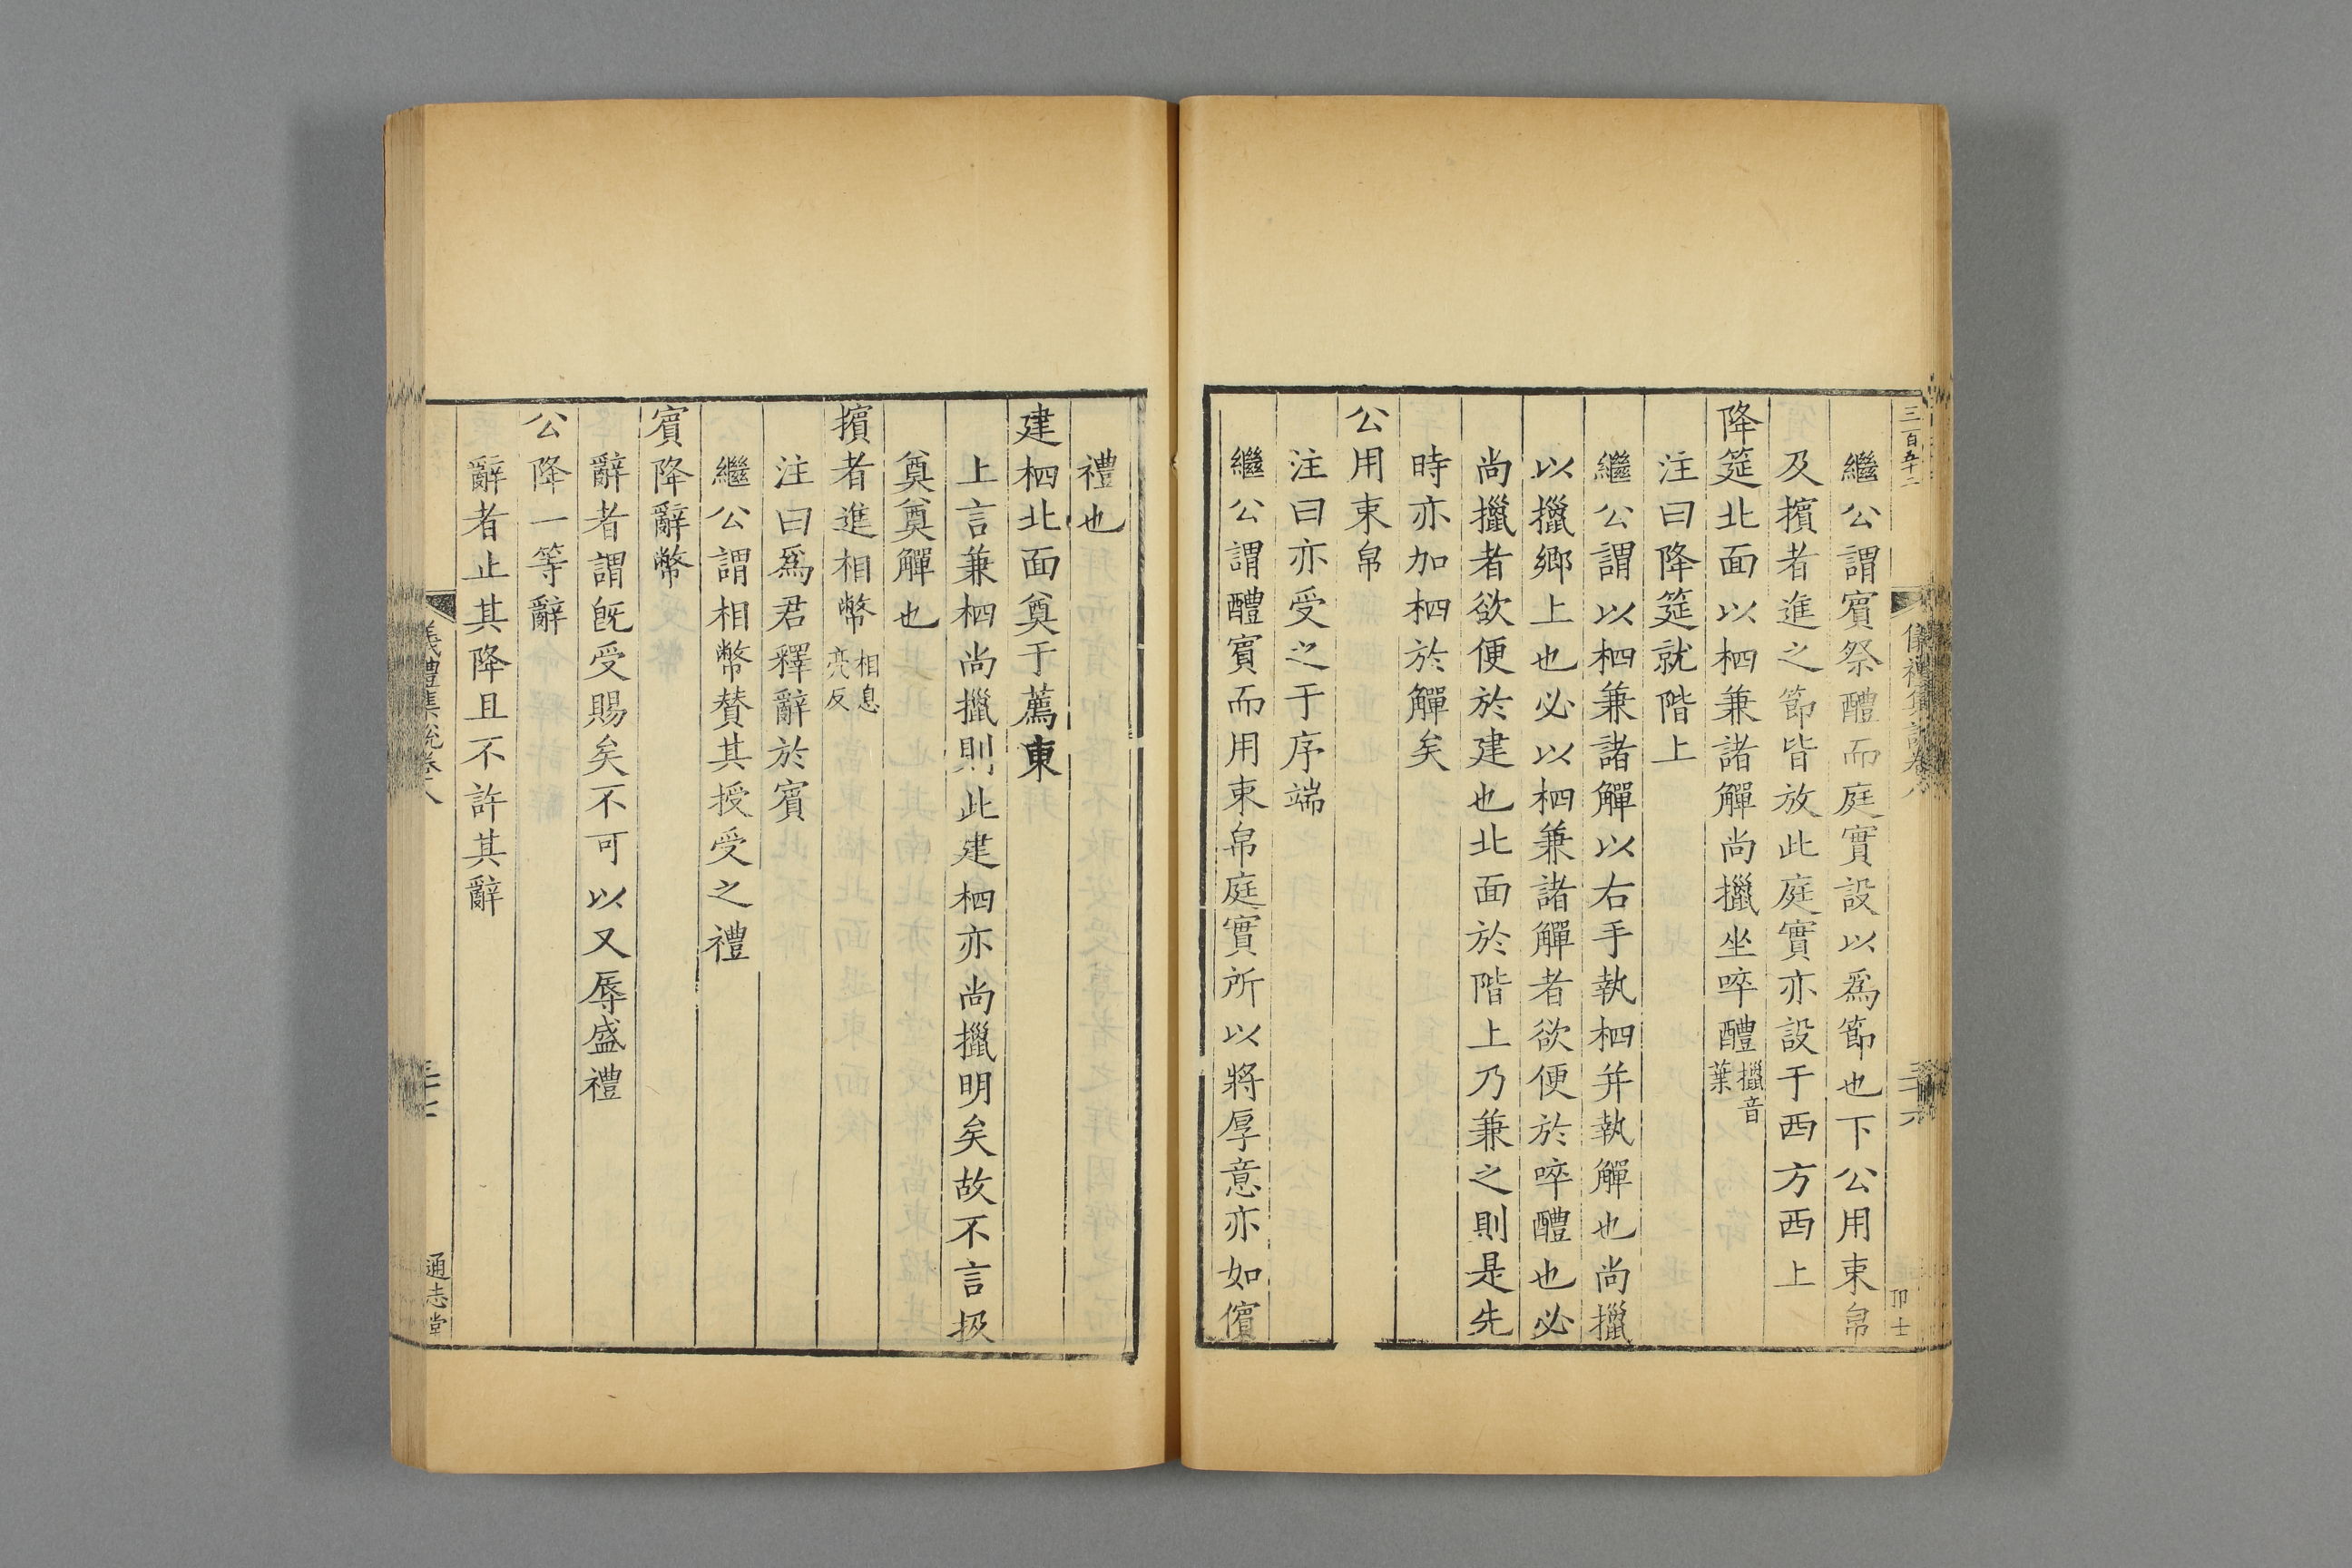 三百五十二
儀禮集說卷八
三十六
卬士
繼公謂賓祭醴而庭實設以爲節也下公用束帛
及擯者進之節皆放此庭實亦設于西方西上
降筵北面以柶兼諸觶尚擸坐啐醴擸音葉
注曰降筵就階上
繼公謂以柶兼諸觶以右手執柶并執觶也尚擸
以擸鄉上也必以柶兼諸觶者欲便於啐醴也必
尚擸者欲便於建也北面於階上乃兼之則是先
時亦加柶於觶矣
公用束帛
注曰亦受之于序端
繼公謂醴賓而用束帛庭實所以將厚意亦如儐
禮也
建柶北面奠于薦東
上言兼柶尚擸則此建柶亦尚擸明矣故不言扱
奠奠觶也
擯者進相幣相息亮反
注曰爲君釋辭於賓
繼公謂相幣贊其授受之禮
賓降辭幣
辭者謂旣受賜矣不可以又辱盛禮
公降一等辭
辭者止其降且不許其辭
儀禮集說卷八
三十七
通志堂